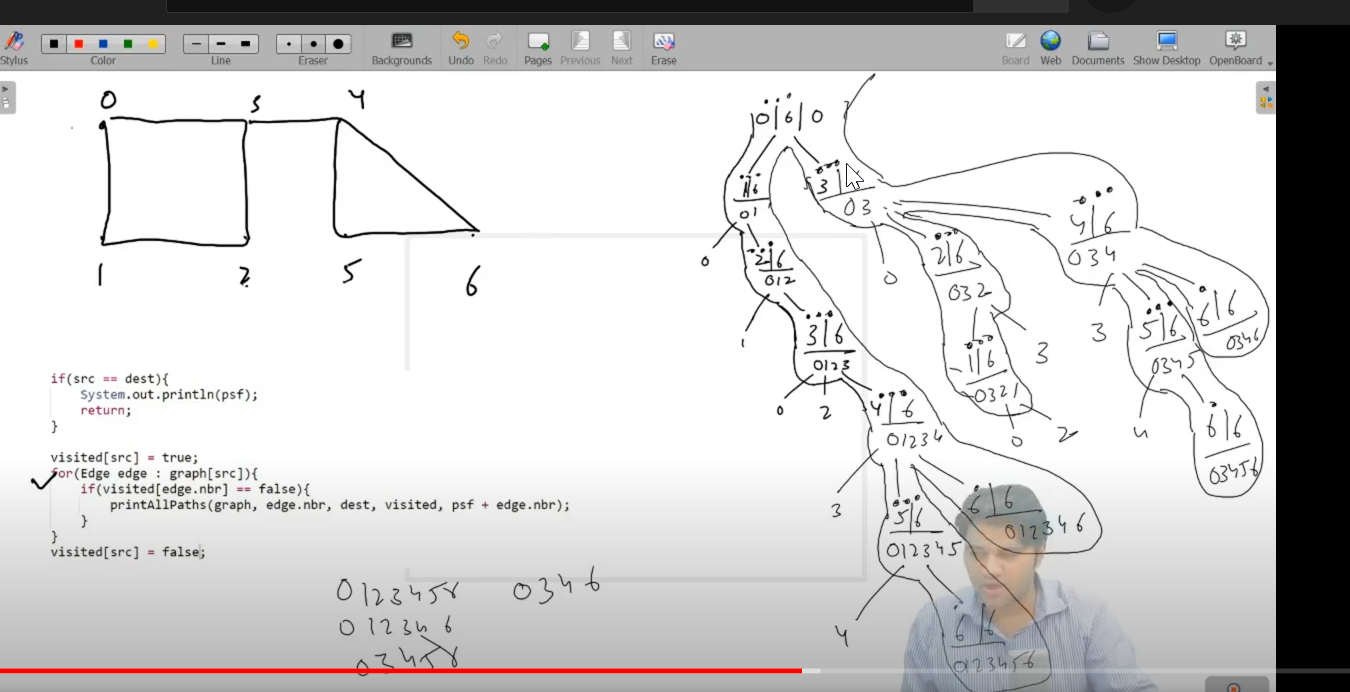 Stylus
Color
Line
Eraser
Backgrounds
Undo
Redo
Pages
Previous
Next
Erase
Board
Web
Documents
Show Desktop
OpenBoard
0 3 4
1 2 5 6
if(src == dest){
System.out.println(psf);
return;
}
visited[src] = true;
for(Edge edge : graph[src]){
if(visited[edge.nbr] == false){
printAllPaths(graph, edge.nbr, dest, visited, psf + edge.nbr);
}
}
visited[src] = false;
0123456 0346
012346
03456
0|6|0
1|6
01
0
2|6
012
1
3|6
0123
0 2
4|6
01234
3
5|6
012345
6|6
012346
4
6|6
0123456
3|
03
0
2|6
032
3
1|6
0321
0 2
4|6
034
3
5|6
0345
6|6
0346
4
6|6
03456